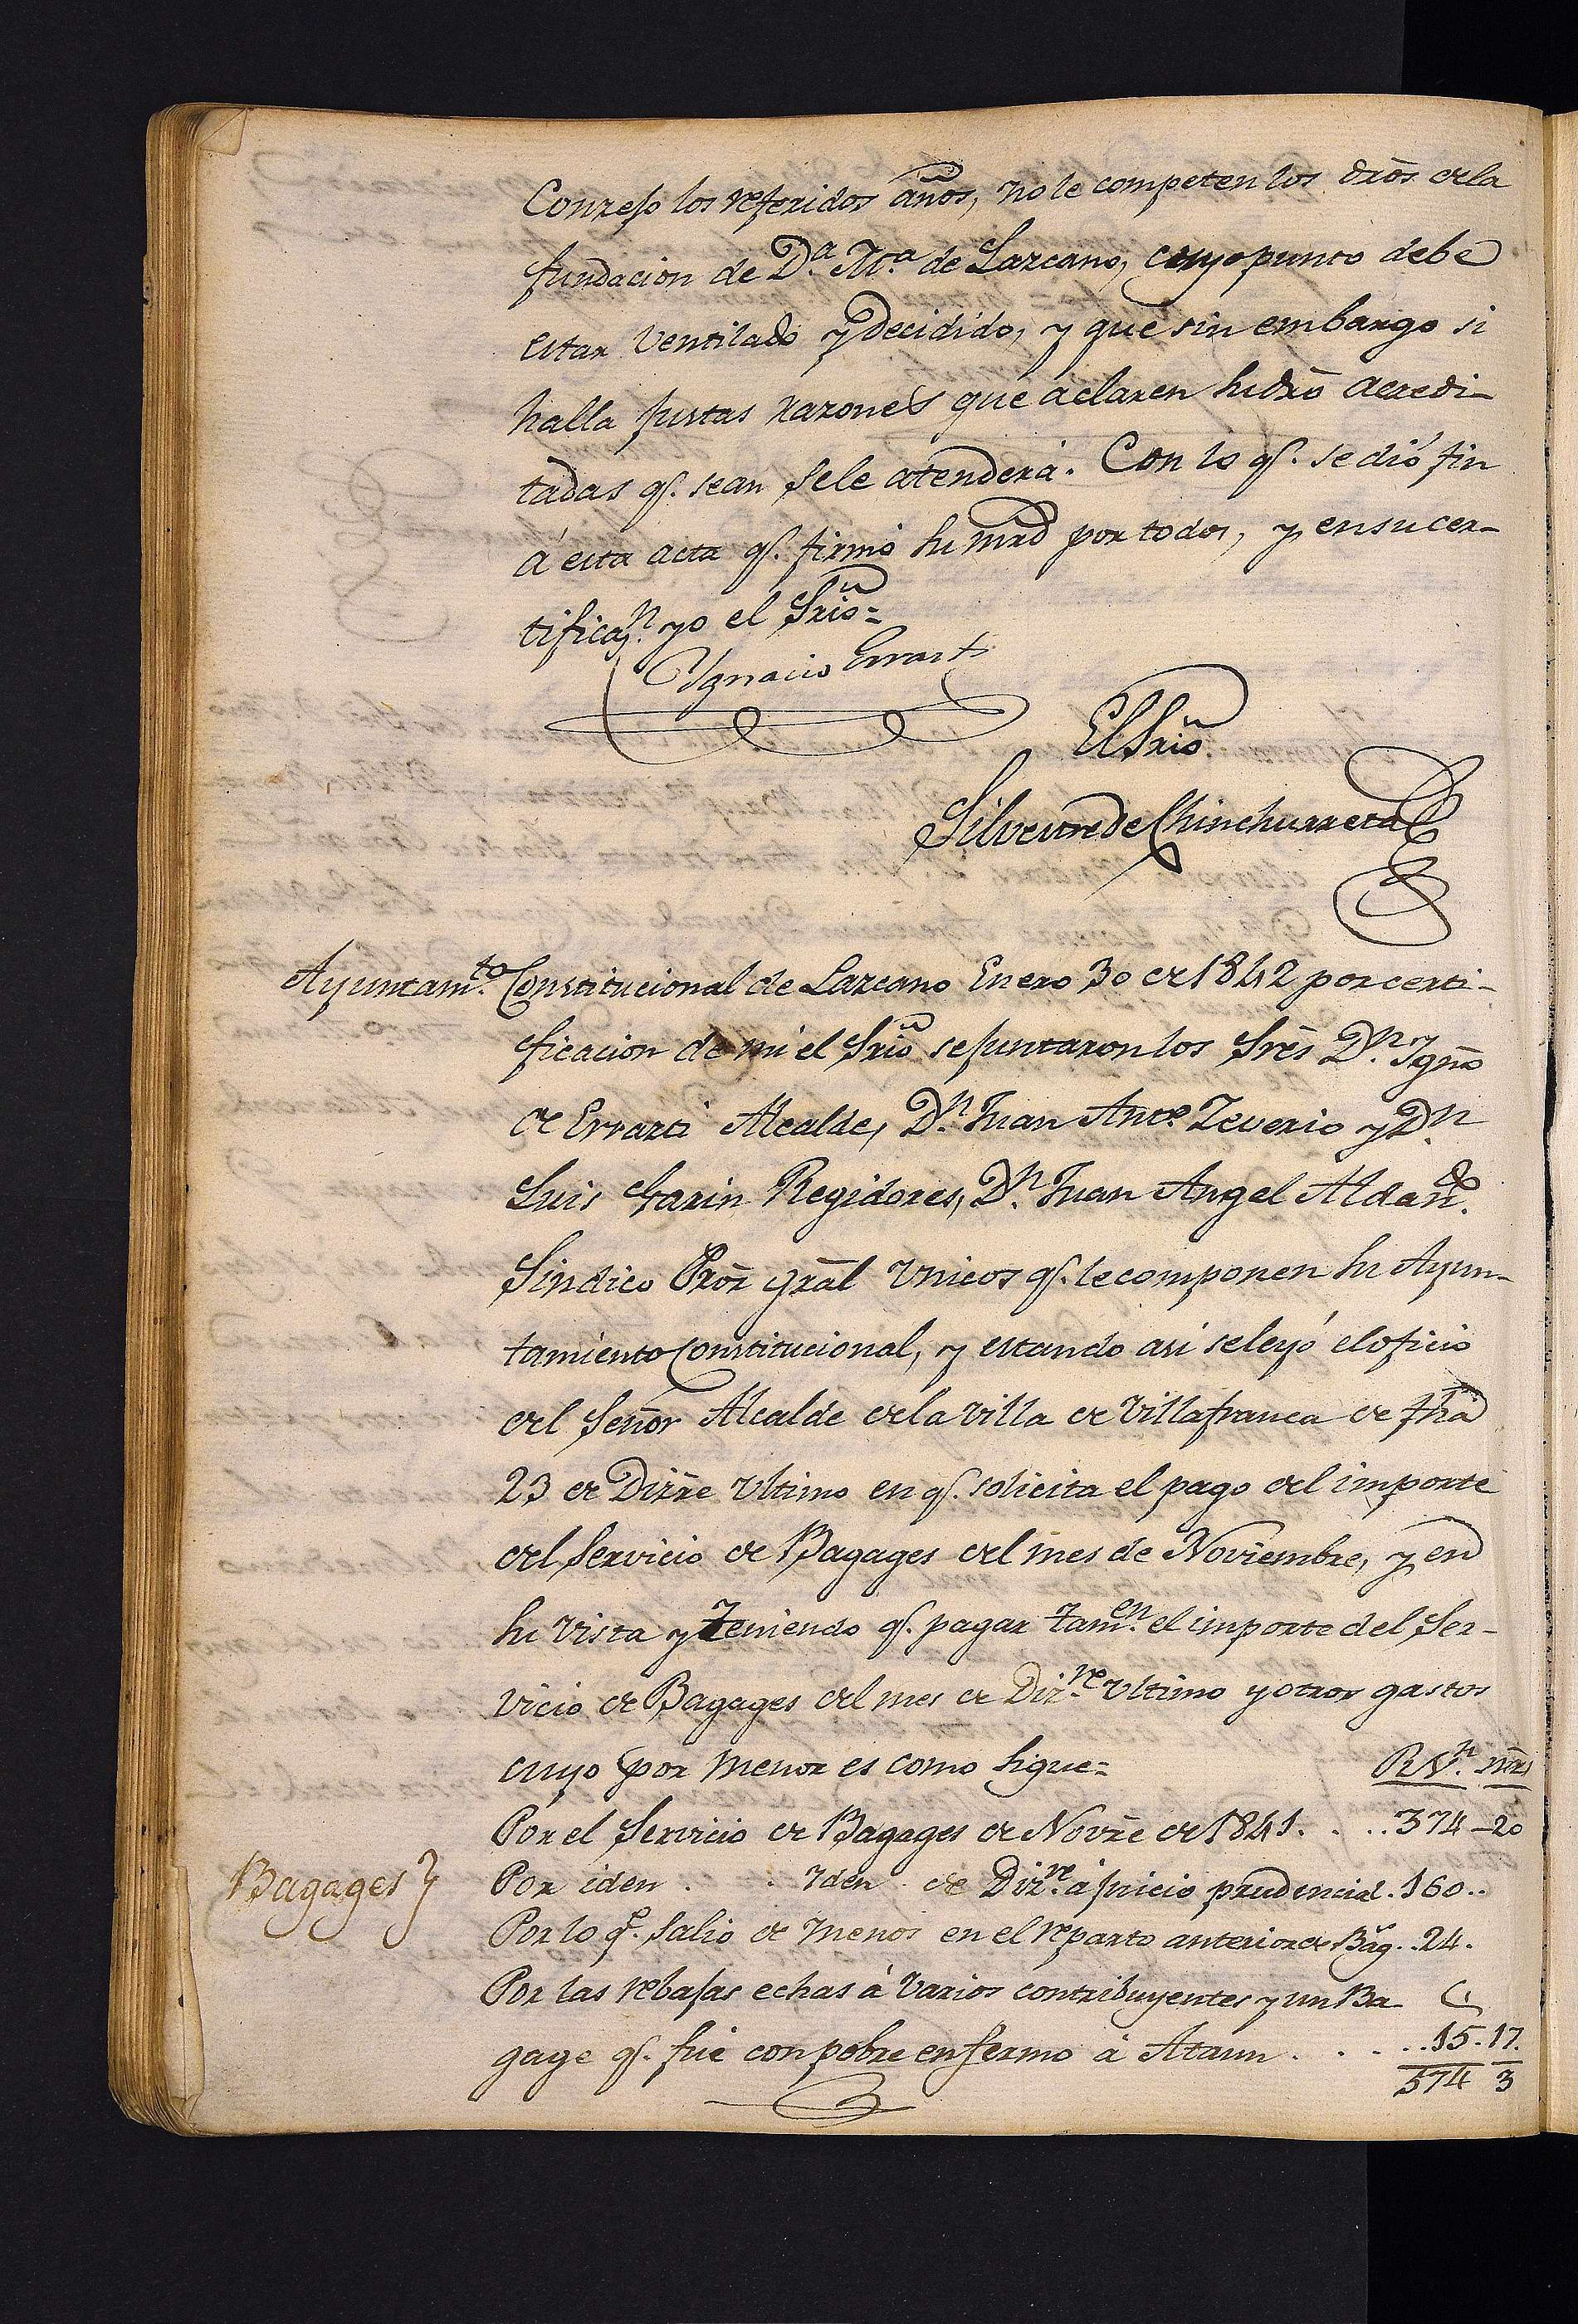 Conzejo los referidos años, no le competen los dr̃os de la
fundacion de D.ª M.ª de Lazcano, cuyo punto debe
estar ventilado y decidido, y que sin embargo si
halla justas razones que aclaren su dr̃o acredi-
tadas q.e sean se le atenderá. Con lo q.e se dió fin
á esta acta q.e firmó su mrd por todos, y en su cer-
tificaz.n yo el Srio=
Ygnacio Errarti
El Srio.
Silvestre de Chinchurreta
Ayuntam.to Constitucional de Lazcano Enero 30 de 1842 por certi-
ficacion de mi el Srio se juntaron los Sres D.n Ygno
de Errazti Alcalde, D.n Juan Anto. Zeverio y D.n
Luis Garin Regidores, D.n Juan Angel Aldan.do
Sindico Pror gral unicos q.e le componen su Ayun-
tamiento Constitucional, y estando asi se leyó el oficio
del Señor Alcalde de la Villa de Villafranca de fha
23 de Dizre ultimo en q.e solicita el pago del importe
del servicio de Bagages del mes de Noviembre, y en
su vista y teniendo q.e pagar tam.en el importe del Ser-
vicio de Bagages del mes de Diz.re ultimo y otros gastos
cuyo por menor es como sigue= R V.n mrs
Por el servicio de Bagages de Novre de 1841. . . . 374-20
Bagages} Por iden . . Yden . de Diz.re á juicio prudencial. 160..
Por lo q.e salio de menos en el reparto anterior de Bag. . 24.
Por las rebajas echas á varios contribuyentes y un Ba-
gage q.e fué con pobre enfermo á Ataun . . . . . 15. 17.
574 3